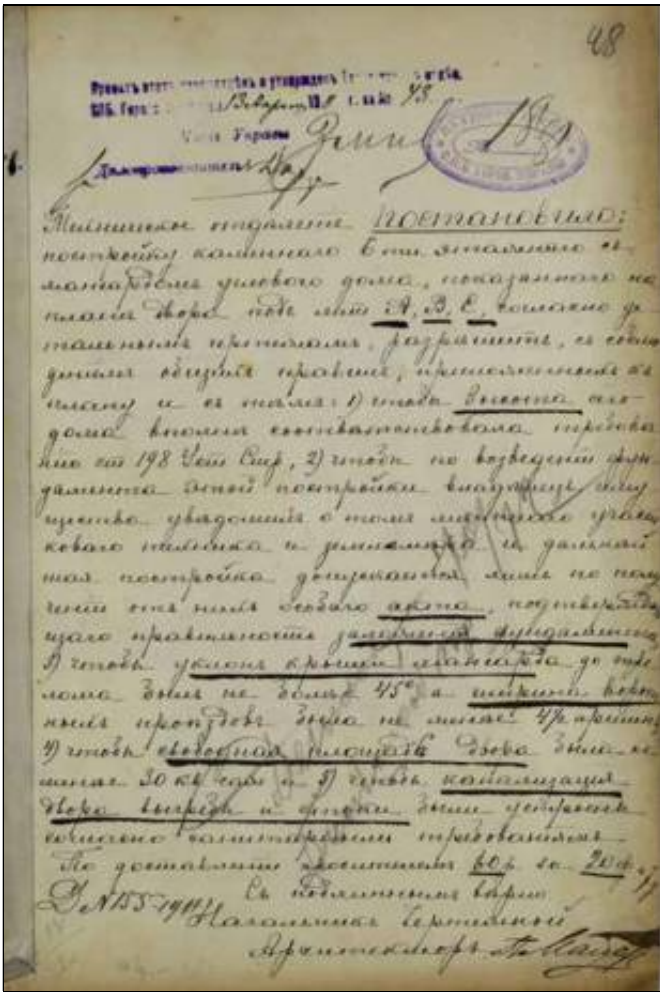 48
Проектъ этотъ разсмотрѣнъ и утвержденъ
СПБ. Город. 13 Января 191 г. за № 43.
Члены Управы
Дѣлопроизводитель
Техническое отдѣленіе постановило:
постройку каменнаго 6ти этажнаго съ
мансардомъ угловаго дома, показаннаго на
планѣ двора подъ лит. А, В, Е, согласно де-
тальнымъ чертежамъ, разрѣшить, съ соблю-
деніемъ общихъ правилъ, приложенныхъ къ
плану и съ тѣмъ: 1) чтобы высота его
дома вполнѣ соотвѣтствовала требова-
нію ст 198 Уст Стр, 2) чтобы по возведеніи фун-
дамента этой постройки владѣлецъ иму-
щества увѣдомилъ о томъ мѣстнаго участ-
коваго техника и землемѣра и дальнѣй-
шая постройка допускается лишь по полу-
ченіи отъ нихъ особаго акта, подтвержда-
ющаго правильность заложенія фундамента,
3) чтобы уклонъ крыши мансарда до пере-
лома былъ не болѣе 45° а ширина ворот-
ныхъ проѣздовъ была не менѣе 4½ аршинъ,
4) чтобы свободная площадь двора была не
менѣе 30 кв саж и 5) чтобы канализація
двора выгреба и стоки были устроены
согласно санитарнымъ требованіямъ.
По доставленіи просителемъ 60 р за 20
Съ подлиннымъ вѣрно
Д № 155 1911
Начальникъ Чертежной
Архитекторъ